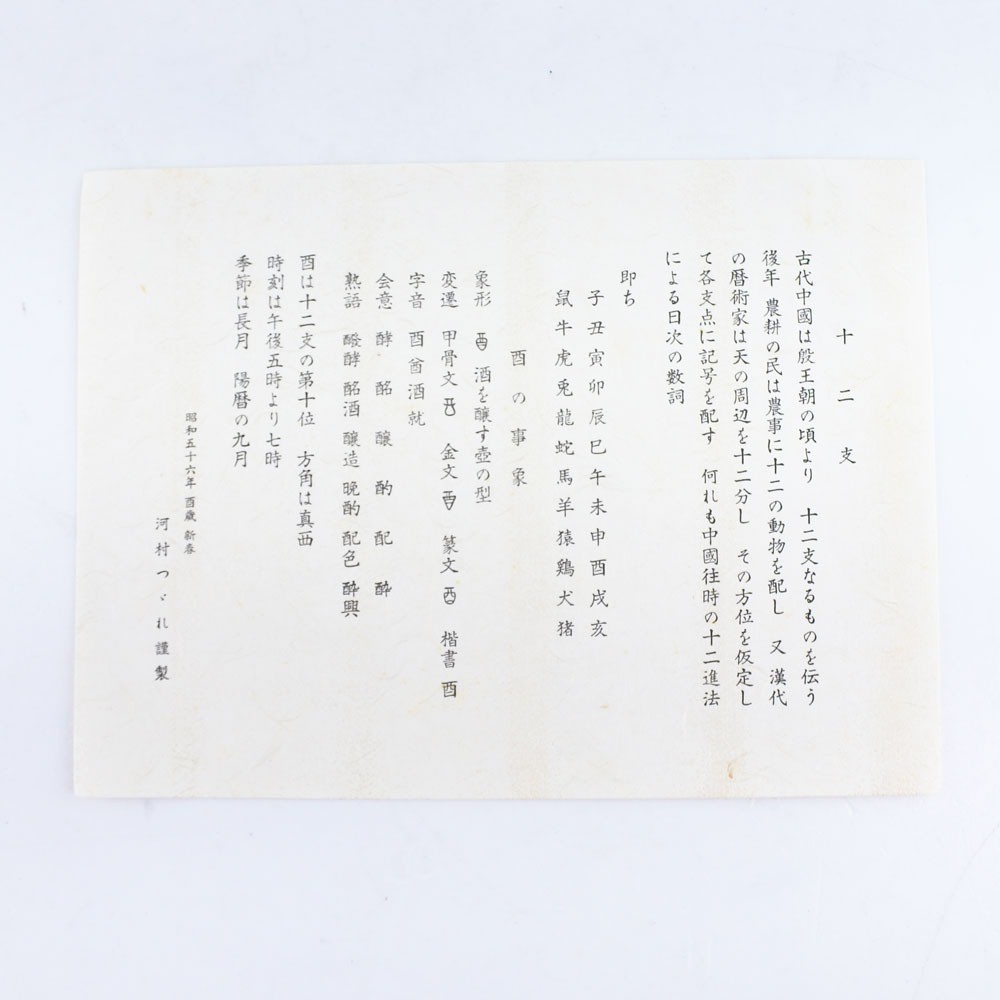 十二支
古代中國は殷王朝の頃より 十二支なるものを伝う
後年 農耕の民は農事に十二の動物を配し 又 漢代
の暦術家は天の周辺を十二分し その方位を仮定し
て各支点に記号を配す 何れも中國往時の十二進法
による日次の数詞
即ち
子丑寅卯辰巳午未申酉戌亥
鼠牛虎兎龍蛇馬羊猿鶏犬猪
酉の事象
象形 酒を醸す壺の型
変遷 甲骨文 金文 篆文 楷書 酉
字音 酉酋酒就
会意 酵 酩 醸 酌 配 酔
熟語 醗酵 酩酒 醸造 晩酌 配色 酔興
酉は十二支の第十位 方角は真西
時刻は午後五時より七時
季節は長月 陽暦の九月
昭和五十六年 酉歳 新春
河村つゞれ謹製